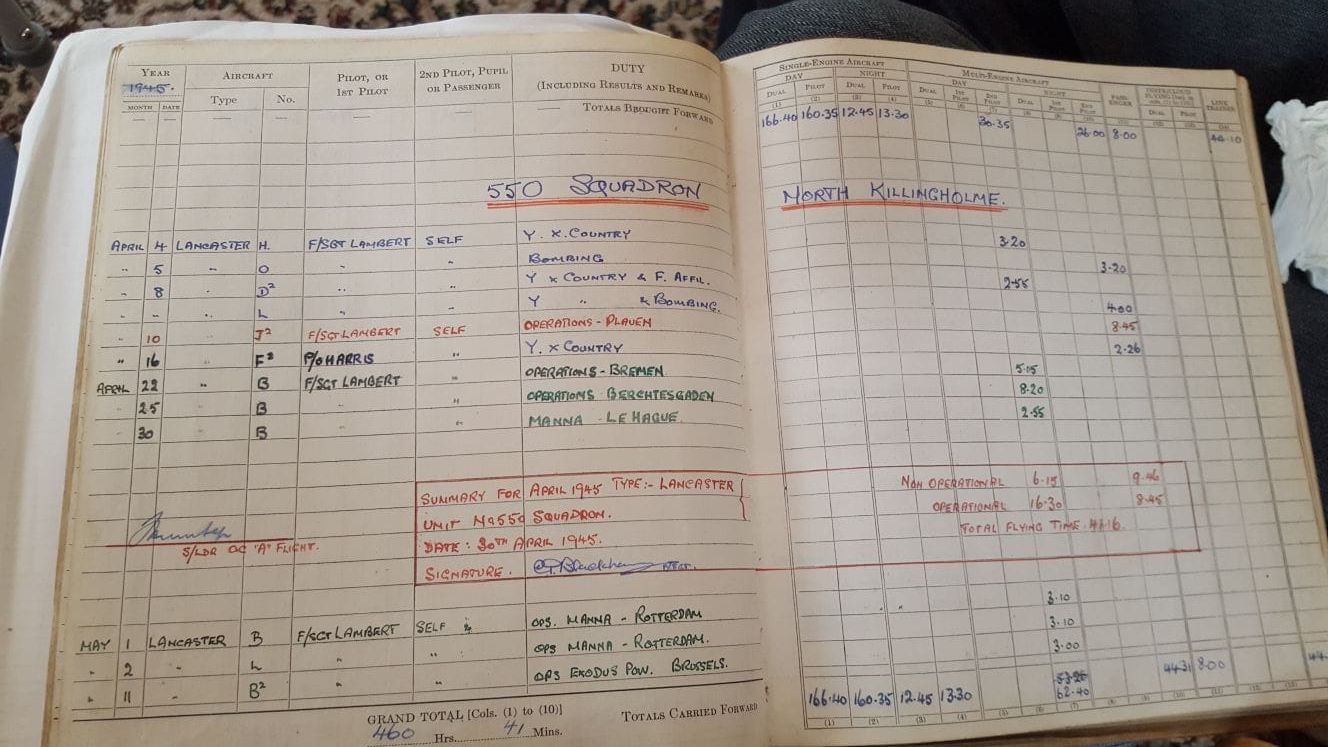 YEAR AIRCRAFT PILOT, OR 1ST PILOT 2ND PILOT, PUPIL OR PASSENGER DUTY (INCLUDING RESULTS AND REMARKS)
1945. Type No.
MONTH DATE
— — — — — — TOTALS BROUGHT FORWARD
SINGLE-ENGINE AIRCRAFT MULTI-ENGINE AIRCRAFT
DAY NIGHT DAY NIGHT PASSENGER LINK TRAINER
DUAL PILOT DUAL PILOT DUAL 1ST PILOT 2ND PILOT DUAL 1ST PILOT 2ND PILOT DUAL PILOT
(1) (2) (3) (4) (5) (6) (7) (8) (9) (10) (11) (12) (13)
166.40 160.35 12.45 13.30 30.35 26.00 8.00 44.10
550 SQUADRON NORTH KILLINGHOLME.
APRIL 4 LANCASTER H. F/SGT LAMBERT SELF Y. X. COUNTRY 3.20
" 5 " O " " BOMBING 3.20
" 8 " D² " " Y X COUNTRY & F. AFFIL. 2.55
" " " L " " Y " & BOMBING. 4.00
" 10 " J² F/SGT LAMBERT SELF OPERATIONS - PLAUEN 8.45
" 16 " F² P/O HARRIS " Y. X COUNTRY 2.26
APRIL 22 " B F/SGT LAMBERT " OPERATIONS - BREMEN. 5.15
" 25 B " OPERATIONS BERCHTESGADEN 8.20
" 30 B " " MANNA - LE HAGUE. 2.55
SUMMARY FOR APRIL 1945 TYPE:- LANCASTER NON OPERATIONAL 6.15 9.46
UNIT No 550 SQUADRON. OPERATIONAL 16.30 8.45
DATE: 30TH APRIL 1945. TOTAL FLYING TIME. 41.16.
S/LDR OC "A" FLIGHT.
SIGNATURE.
MAY 1 LANCASTER B F/SGT LAMBERT SELF OPS. MANNA - ROTTERDAM 3.10
" 2 " L " " OPS MANNA - ROTTERDAM. 3.10
" 11 " B² " " OPS EXODUS POW. BRUSSELS. 3.00
53.25 44.31 8.00
GRAND TOTAL [Cols. (1) to (10)] TOTALS CARRIED FORWARD 166.40 160.35 12.45 13.30 62.40
460 Hrs. 41 Mins.
(1) (2) (3) (4) (5) (6) (7) (8) (9) (10) (11) (12) (13)